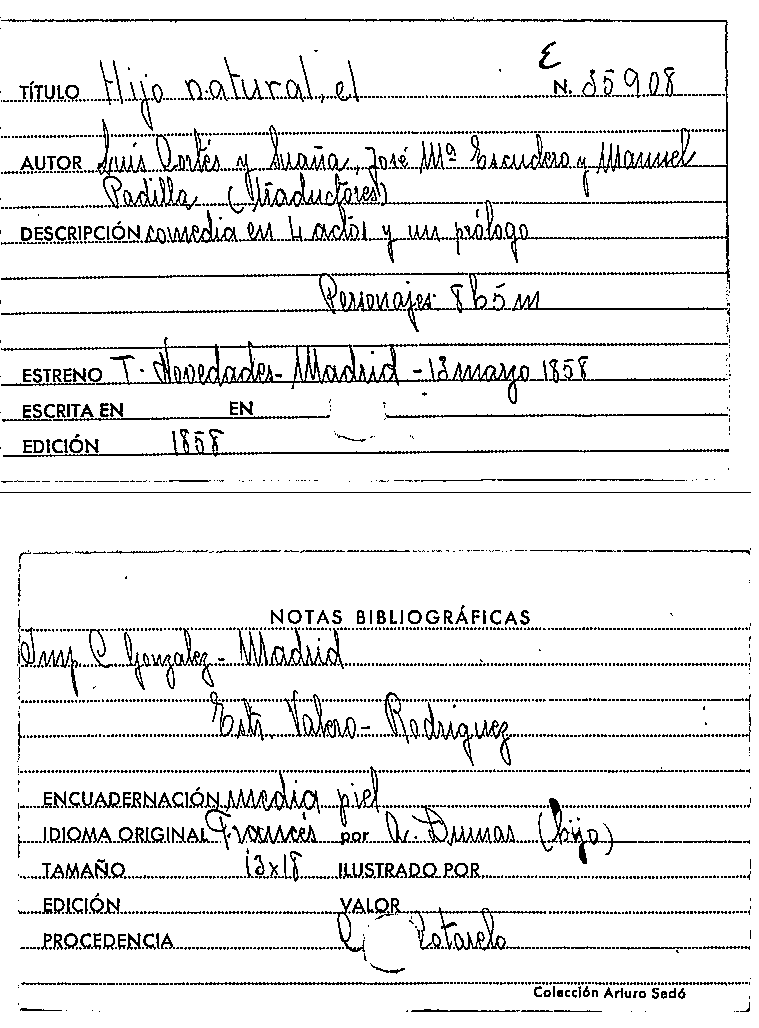 E
TÍTULO Hijo natural, el N. 35908
AUTOR Luis Cortés y Suaña, José Mª Escudero y Manuel
Padilla (Traductores)
DESCRIPCIÓN comedia en 4 actos y un prólogo
Personajes 8 h 5 m
ESTRENO T. Novedades - Madrid - 13 marzo 1858
ESCRITA EN EN
EDICIÓN 1858
NOTAS BIBLIOGRÁFICAS
Imp. C. Gonzalez - Madrid
Estr. Valero - Rodriguez
ENCUADERNACIÓN media piel
IDIOMA ORIGINAL Francés por A. Dumas (hijo)
TAMAÑO 13x18 ILUSTRADO POR
EDICIÓN VALOR
PROCEDENCIA Cotarelo
Colección Arturo Sedó